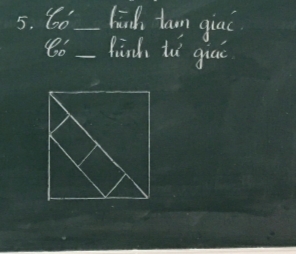 5. Có __ hình tam giác.
Có __ hình tứ giác.